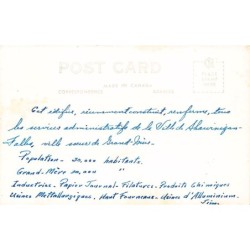 POST CARD
MADE IN CANADA
CORRESPONDENCE ADDRESS
PLACE STAMP HERE
Cet édifice, récemment construit, renferme, tous
les services administratifs de la Ville de Shawinigan-
Falls, ville soeur de Grand'Mère.
Population - 30,000 habitants.
Grand-Mère 20,000 "
Industries - Papier Journal - Filatures - Produits Chimiques
Usines Métallurgiques, Haut Fourneaux - Usines d'Aluminium,